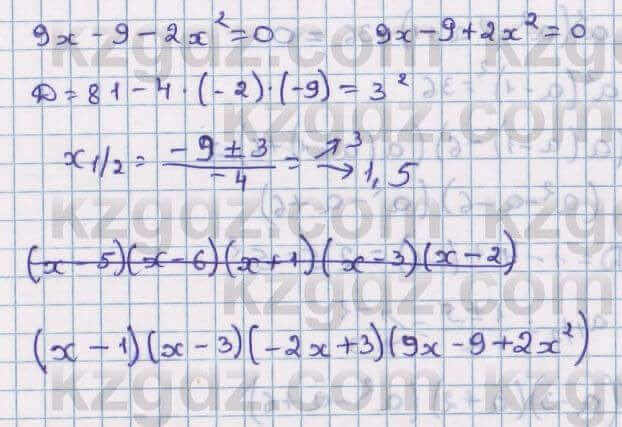 9x - 9 - 2x² = 0    9x - 9 + 2x² = 0
D = 81 - 4 · (-2) · (-9) = 3²
x₁/₂ = (-9 ± 3)/(-4) = → 3 → 1,5
(x - 5)(x - 6)(x + 1)(x - 3)(x - 2)
(x - 1)(x - 3)(-2x + 3)(9x - 9 + 2x²)
kzgdz.com